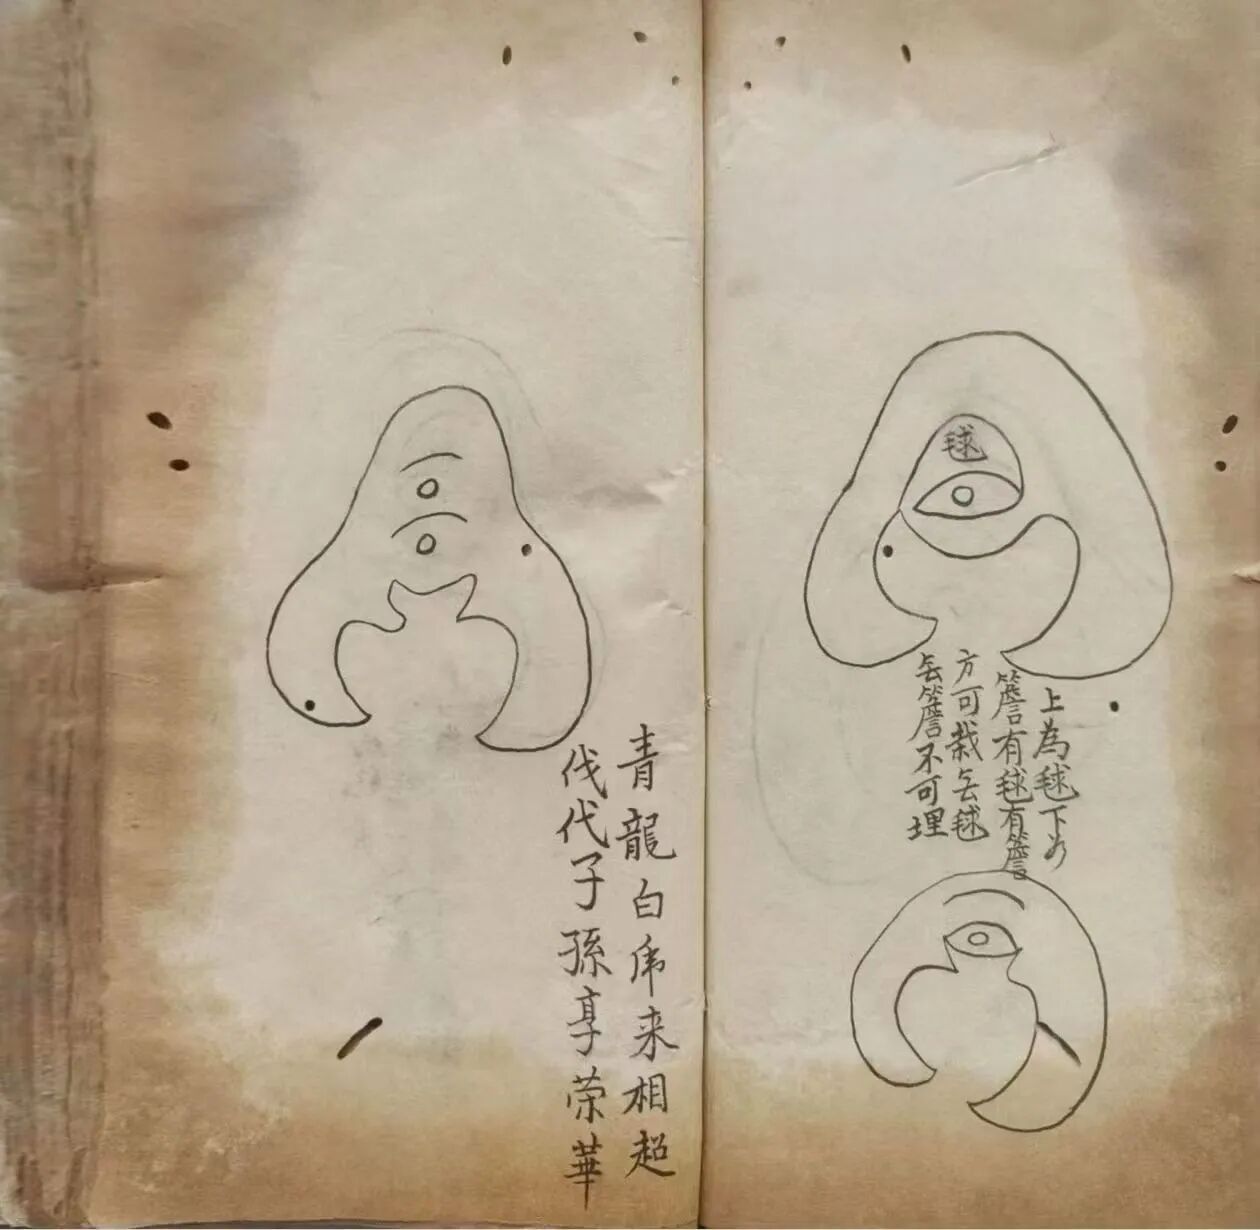 毬
上為毬下为
簷有毬有簷
方可栽𠫤毬
𠫤簷不可埋
青龍白虎来相超
伐代子孫享荣華